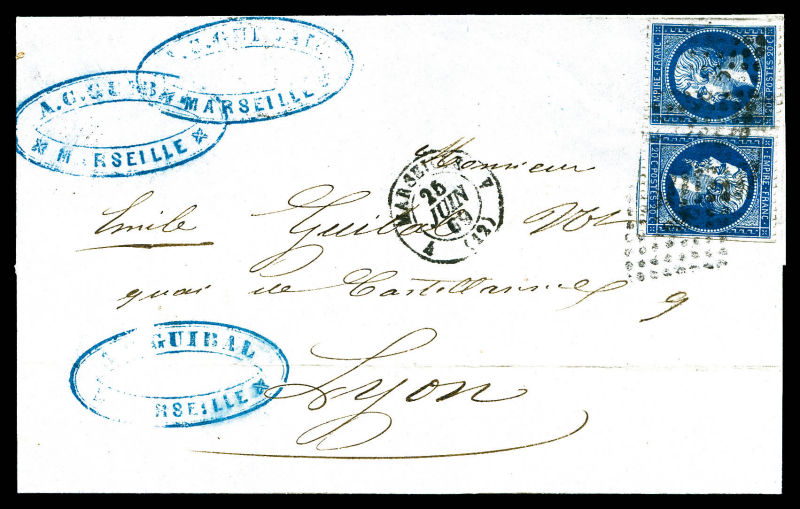 A.C. GUIBAL
MARSEILLE
A.C. GUIBAL
MARSEILLE
EMPIRE FRANC
20c POSTES 20c
EMPIRE FRANC
20c POSTES 20c
MARSEILLE
25
JUIN
(12)
Monsieur
Emile Guibal
quai de Castellane 9
Lyon
GUIBAL
MARSEILLE